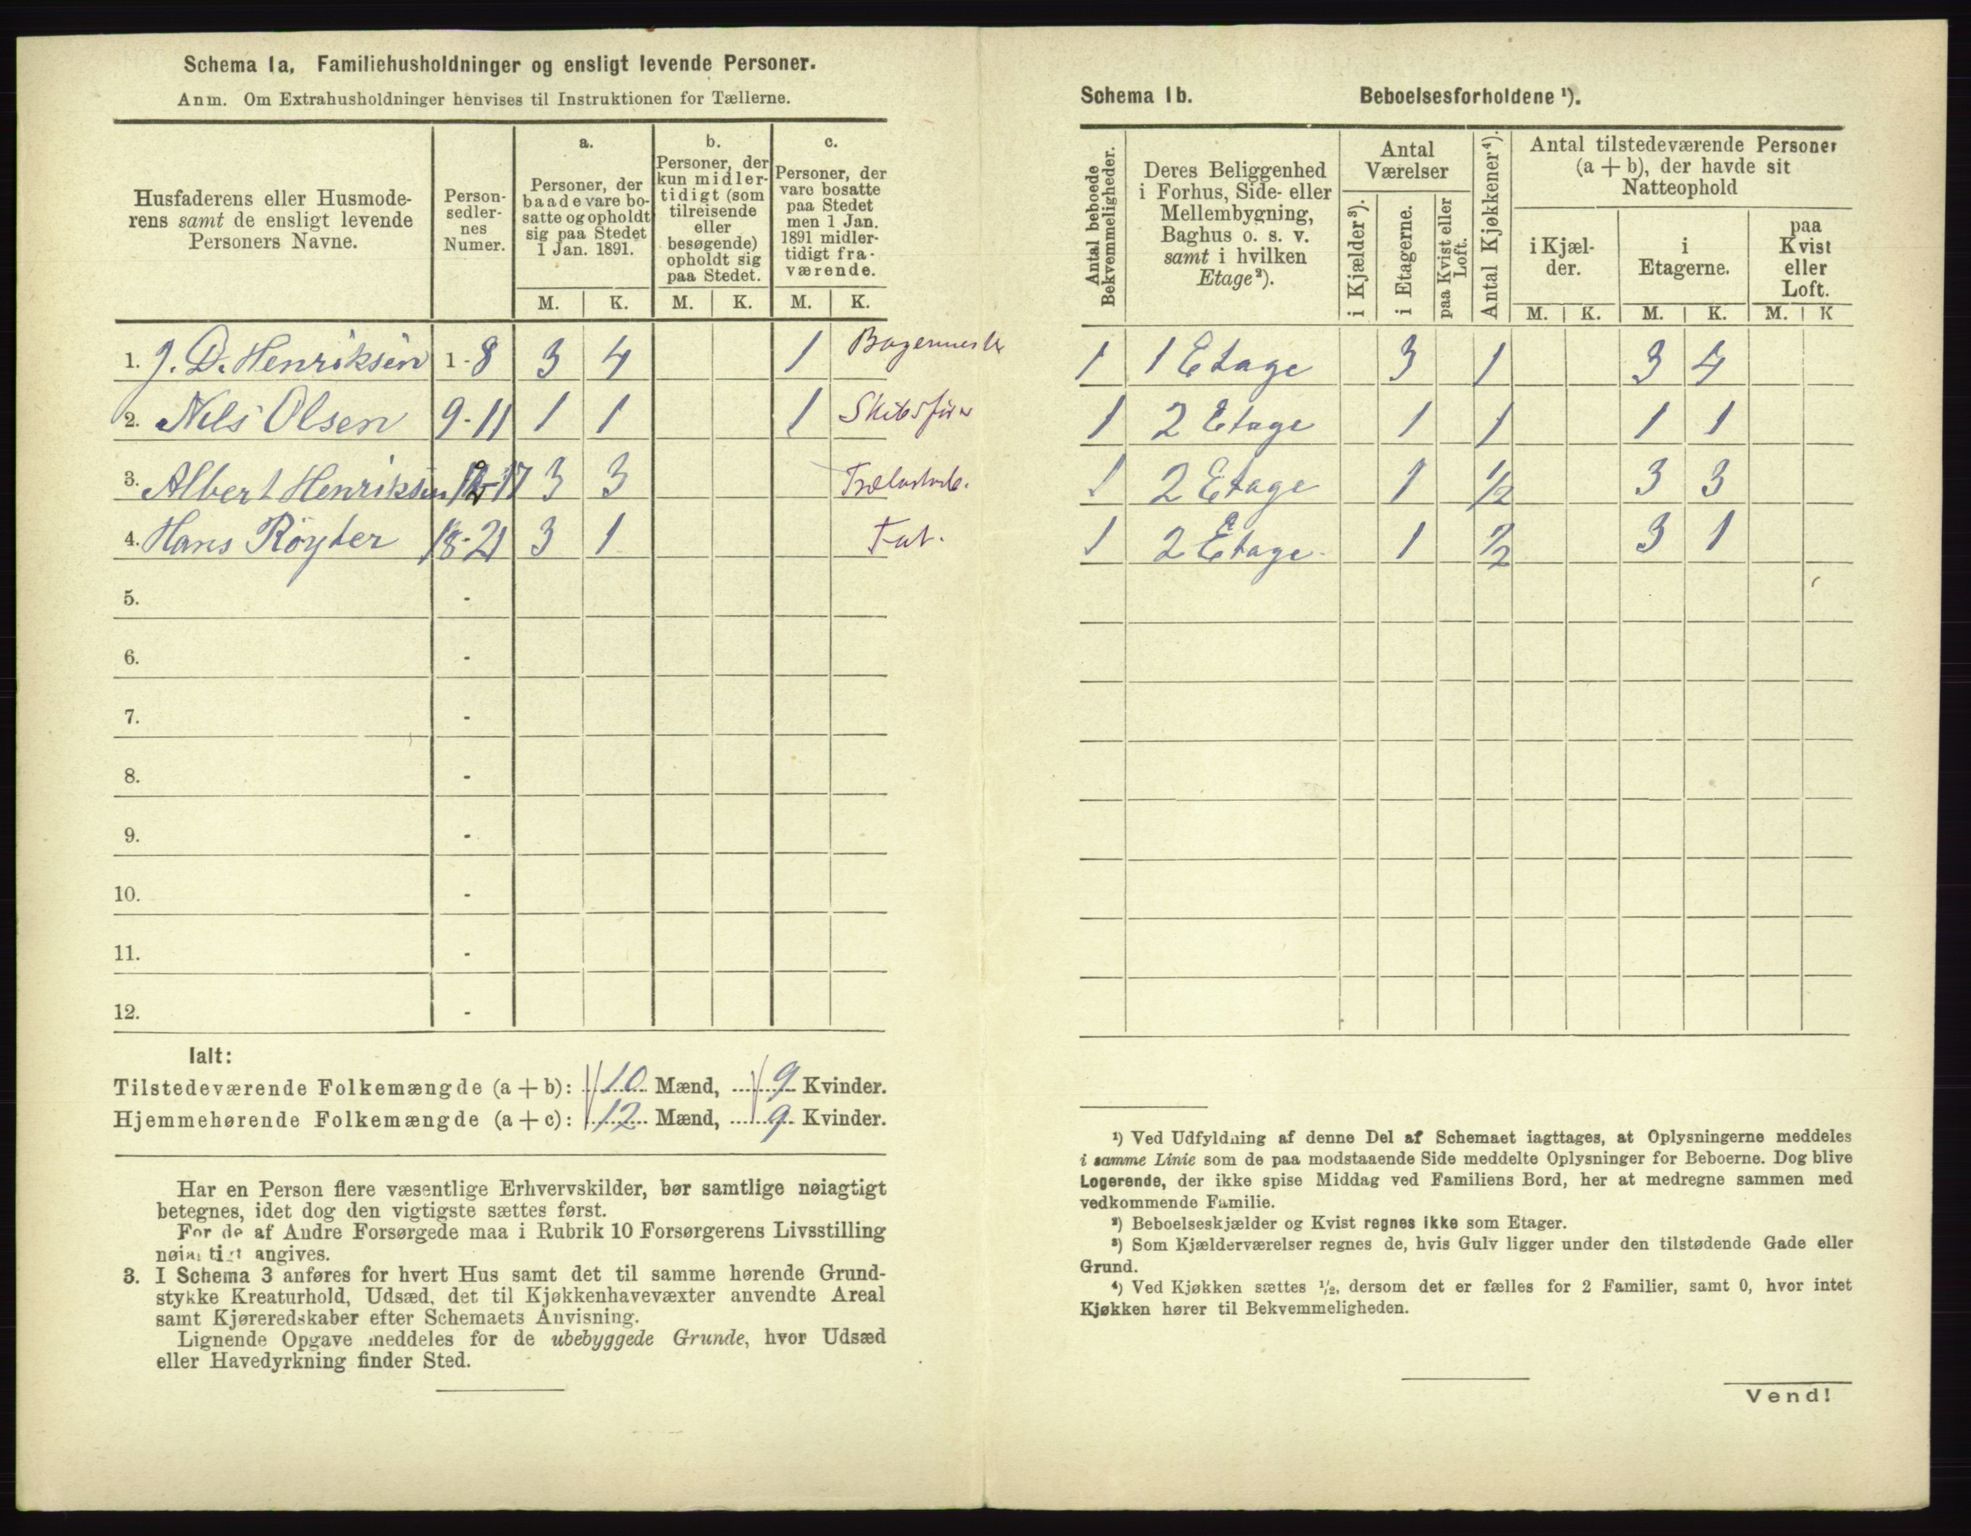 Schema 1a. Familiehusholdninger og ensligt levende Personer.
Anm. Om Extrahusholdninger henvises til Instruktionen for Tællerne.
Husfaderens eller Husmoderens samt de ensligt levende Personers Navne.
Personsedlernes Numer.
a.
Personer, der baade vare bosatte og opholdt sig paa Stedet 1 Jan. 1891.
b.
Personer, der kun midlertidigt (som tilreisende eller besøgende) opholdt sig paa Stedet.
c.
Personer, der vare bosatte paa Stedet men 1 Jan. 1891 midlertidigt fraværende.
M. K. M. K. M. K.
1. J. D. Henriksen 1-8 3 4 1
2. Nils Olsen 9-11 1 1 1
3. Albert Henriksen 12-17 3 3
4. Hans Röyter 18-21 3 1
5. -
6. -
7. -
8. -
9. -
10. -
11. -
12. -
Ialt:
Tilstedeværende Folkemængde (a + b): 10 Mænd, 9 Kvinder.
Hjemmehørende Folkemængde (a + c): 12 Mænd, 9 Kvinder.
Har en Person flere væsentlige Erhvervskilder, bør samtlige nøiagtigt
betegnes, idet dog den vigtigste sættes først.
For de af Andre Forsørgede maa i Rubrik 10 Forsørgerens Livsstilling
nøiagtigt angives.
3. I Schema 3 anføres for hvert Hus samt det til samme hørende Grund-
stykke Kreaturhold, Udsæd, det til Kjøkkenhavevæxter anvendte Areal
samt Kjøreredskaber efter Schemaets Anvisning.
Lignende Opgave meddeles for de ubebyggede Grunde, hvor Udsæd
eller Havedyrkning finder Sted.
Schema 1b. Beboelsesforholdene ¹).
Antal beboede Bekvemmeligheder.
Deres Beliggenhed i Forhus, Side- eller Mellembygning, Baghus o. s. v. samt i hvilken Etage²).
Antal Værelser
i Kjælder³).
i Etagerne.
paa Kvist eller Loft.
Antal Kjøkkener⁴).
Antal tilstedeværende Personer (a + b), der havde sit Natteophold
i Kjælder.
i Etagerne.
paa Kvist eller Loft.
M. K. M. K. M. K
1 1 Etage 3 1 3 4
1 2 Etage 1 1 1 1
1 2 Etage 1 1/2 3 3
1 2 Etage 1 1/2 3 1
¹) Ved Udfyldning af denne Del af Schemaet iagttages, at Oplysningerne meddeles
i samme Linie som de paa modstaaende Side meddelte Oplysninger for Beboerne. Dog blive
Logerende, der ikke spise Middag ved Familiens Bord, her at medregne sammen med
vedkommende Familie.
²) Beboelseskjælder og Kvist regnes ikke som Etager.
³) Som Kjælderværelser regnes de, hvis Gulv ligger under den tilstødende Gade eller
Grund.
⁴) Ved Kjøkken sættes ½, dersom det er fælles for 2 Familier, samt 0, hvor intet
Kjøkken hører til Bekvemmeligheden.
Vend!